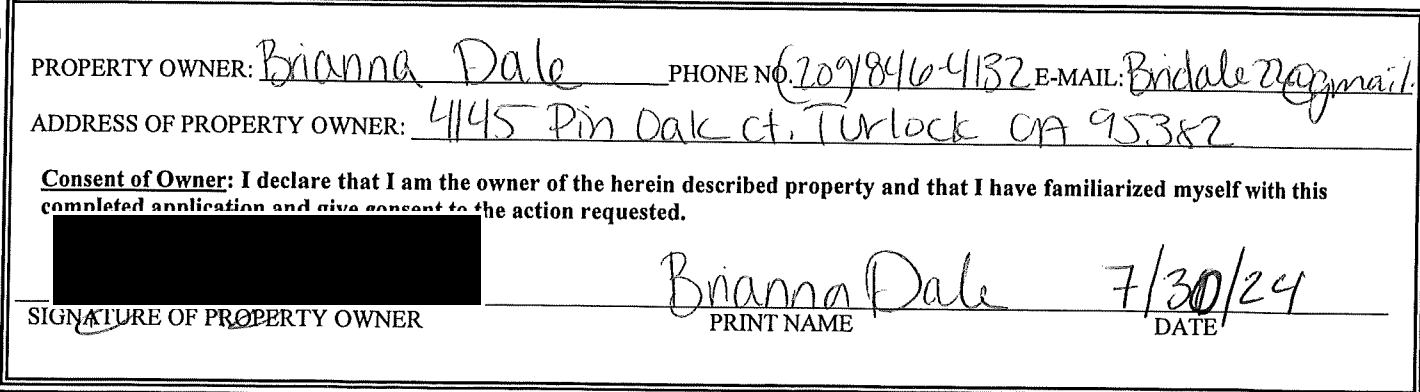 PROPERTY OWNER: Brianna Dale PHONE NO. (209)846-4132 E-MAIL: Bridale22@gmail.
ADDRESS OF PROPERTY OWNER: 4145 Pin Oak ct. Turlock CA 95382
Consent of Owner: I declare that I am the owner of the herein described property and that I have familiarized myself with this
completed application and give consent to the action requested.
Brianna Dale 7/30/24
SIGNATURE OF PROPERTY OWNER PRINT NAME DATE